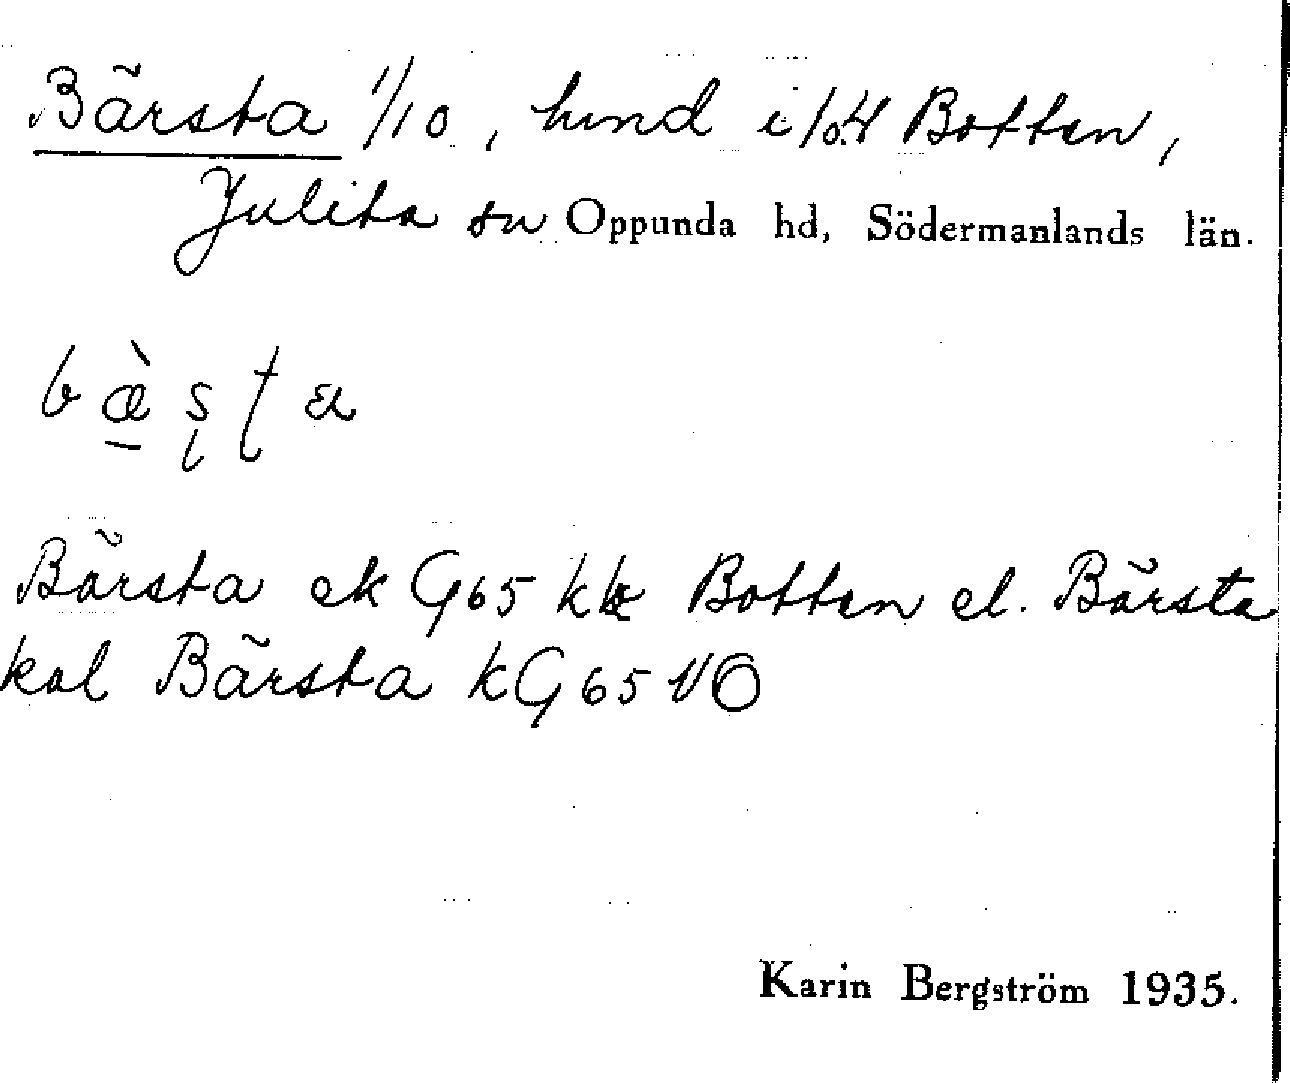 Bärsta 1/10, hmd i 1/0.4 Botten,
Julita sn Oppunda hd, Södermanlands län.
bæ̀ṣṭa
Bärsta ek G65 kk Botten el. Bärsta
kal Bärsta kG65 NO
Karin Bergström 1935.